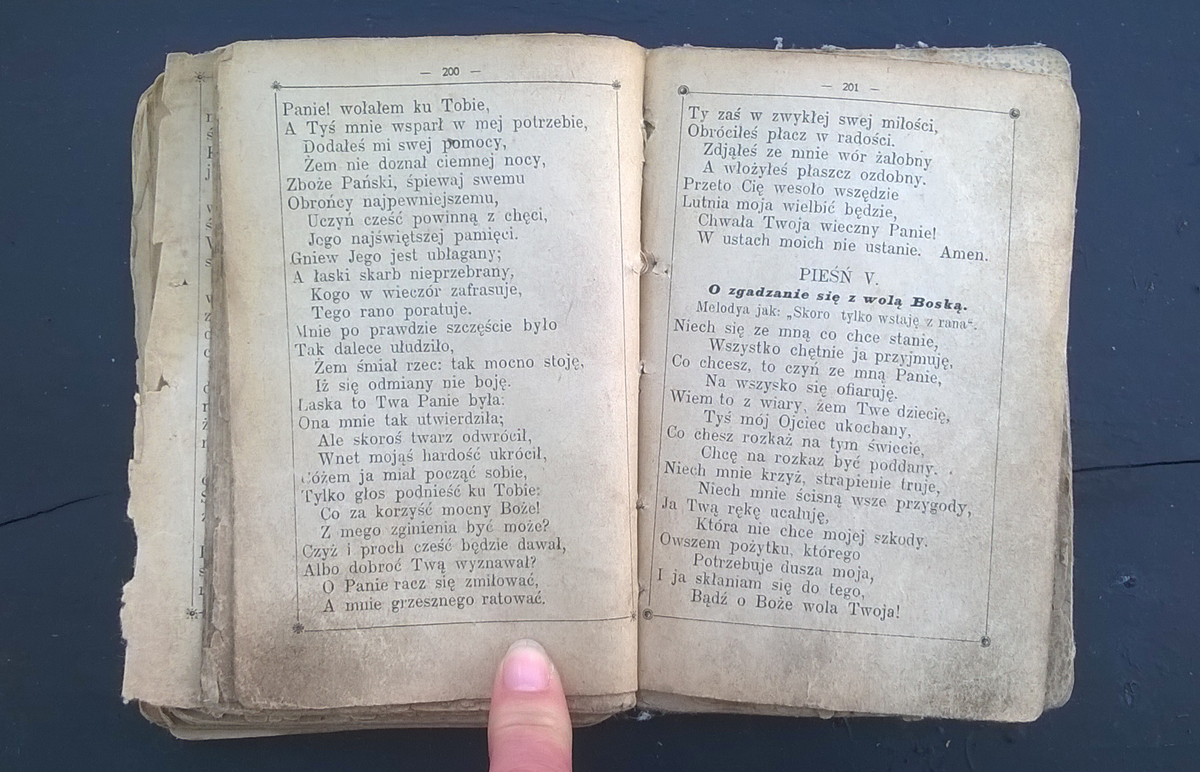 — 200 —
Panie! wołałem ku Tobie,
A Tyś mnie wsparł w mej potrzebie,
Dodałeś mi swej pomocy,
Żem nie doznał ciemnej nocy,
Zboże Pański, śpiewaj swemu
Obrońcy najpewniejszemu,
Uczyń cześć powinną z chęci,
Jego najświętszej pamięci.
Gniew Jego jest ubłagany;
A łaski skarb nieprzebrany,
Kogo w wieczór zafrasuje,
Tego rano poratuje.
Mnie po prawdzie szczęście było
Tak dalece ułudziło,
Żem śmiał rzec: tak mocno stoję,
Iż się odmiany nie boję.
Łaska to Twa Panie była:
Ona mnie tak utwierdziła;
Ale skoroś twarz odwrócił,
Wnet mojąś hardość ukrócił,
Cóżem ja miał począć sobie,
Tylko głos podnieść ku Tobie:
Co za korzyść mocny Boże!
Z mego zginienia być może?
Czyż i proch cześć będzie dawał,
Albo dobroć Twą wyznawał?
O Panie racz się zmiłować,
A mnie grzesznego ratować.
— 201 —
Ty zaś w zwykłej swej miłości,
Obróciłeś płacz w radości.
Zdjąłeś ze mnie wór żałobny
A włożyłeś płaszcz ozdobny.
Przeto Cię wesoło wszędzie
Lutnia moja wielbić będzie,
Chwała Twoja wieczny Panie!
W ustach moich nie ustanie. Amen.
PIEŚŃ V.
O zgadzanie się z wolą Boską.
Melodya jak: „Skoro tylko wstaję z rana“.
Niech się ze mną co chce stanie,
Wszystko chętnie ja przyjmuję,
Co chcesz, to czyń ze mną Panie,
Na wszysko się ofiaruję.
Wiem to z wiary, żem Twe dziecię,
Tyś mój Ojciec ukochany,
Co chesz rozkaż na tym świecie,
Chcę na rozkaz być poddany.
Niech mnie krzyż, strapienie truje,
Niech mnie ścisną wsze przygody,
Ja Twą rękę ucałuję,
Która nie chce mojej szkody.
Owszem pożytku, którego
Potrzebuje dusza moja,
I ja skłaniam się do tego,
Bądź o Boże wola Twoja!